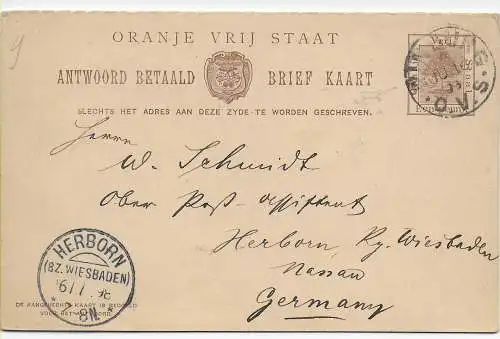 ORANJE VRIJ STAAT
ANTWOORD BETAALD BRIEF KAART
SLECHTS HET ADRES AAN DEZE ZYDE TE WORDEN GESCHREVEN.
Herrn
W. Schmidt
Ober Post-Assistent
Herborn, Rg. Wiesbaden
Nassau
Germany
HERBORN
(BZ. WIESBADEN)
7-8N.
DE AANGEHECHTE KAART IS BEDOELD
VOOR HET ANTWOORD.